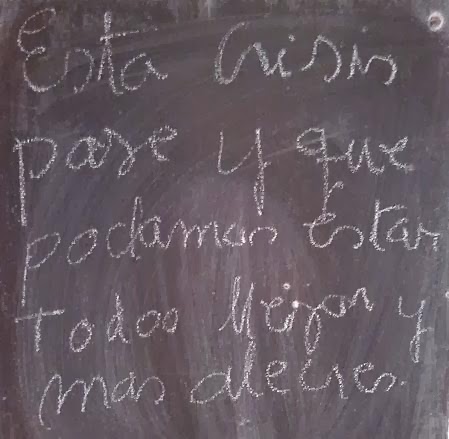 Esta Crisis
pase y que
podamos Estar
Todos Mejor y
mas alecres.